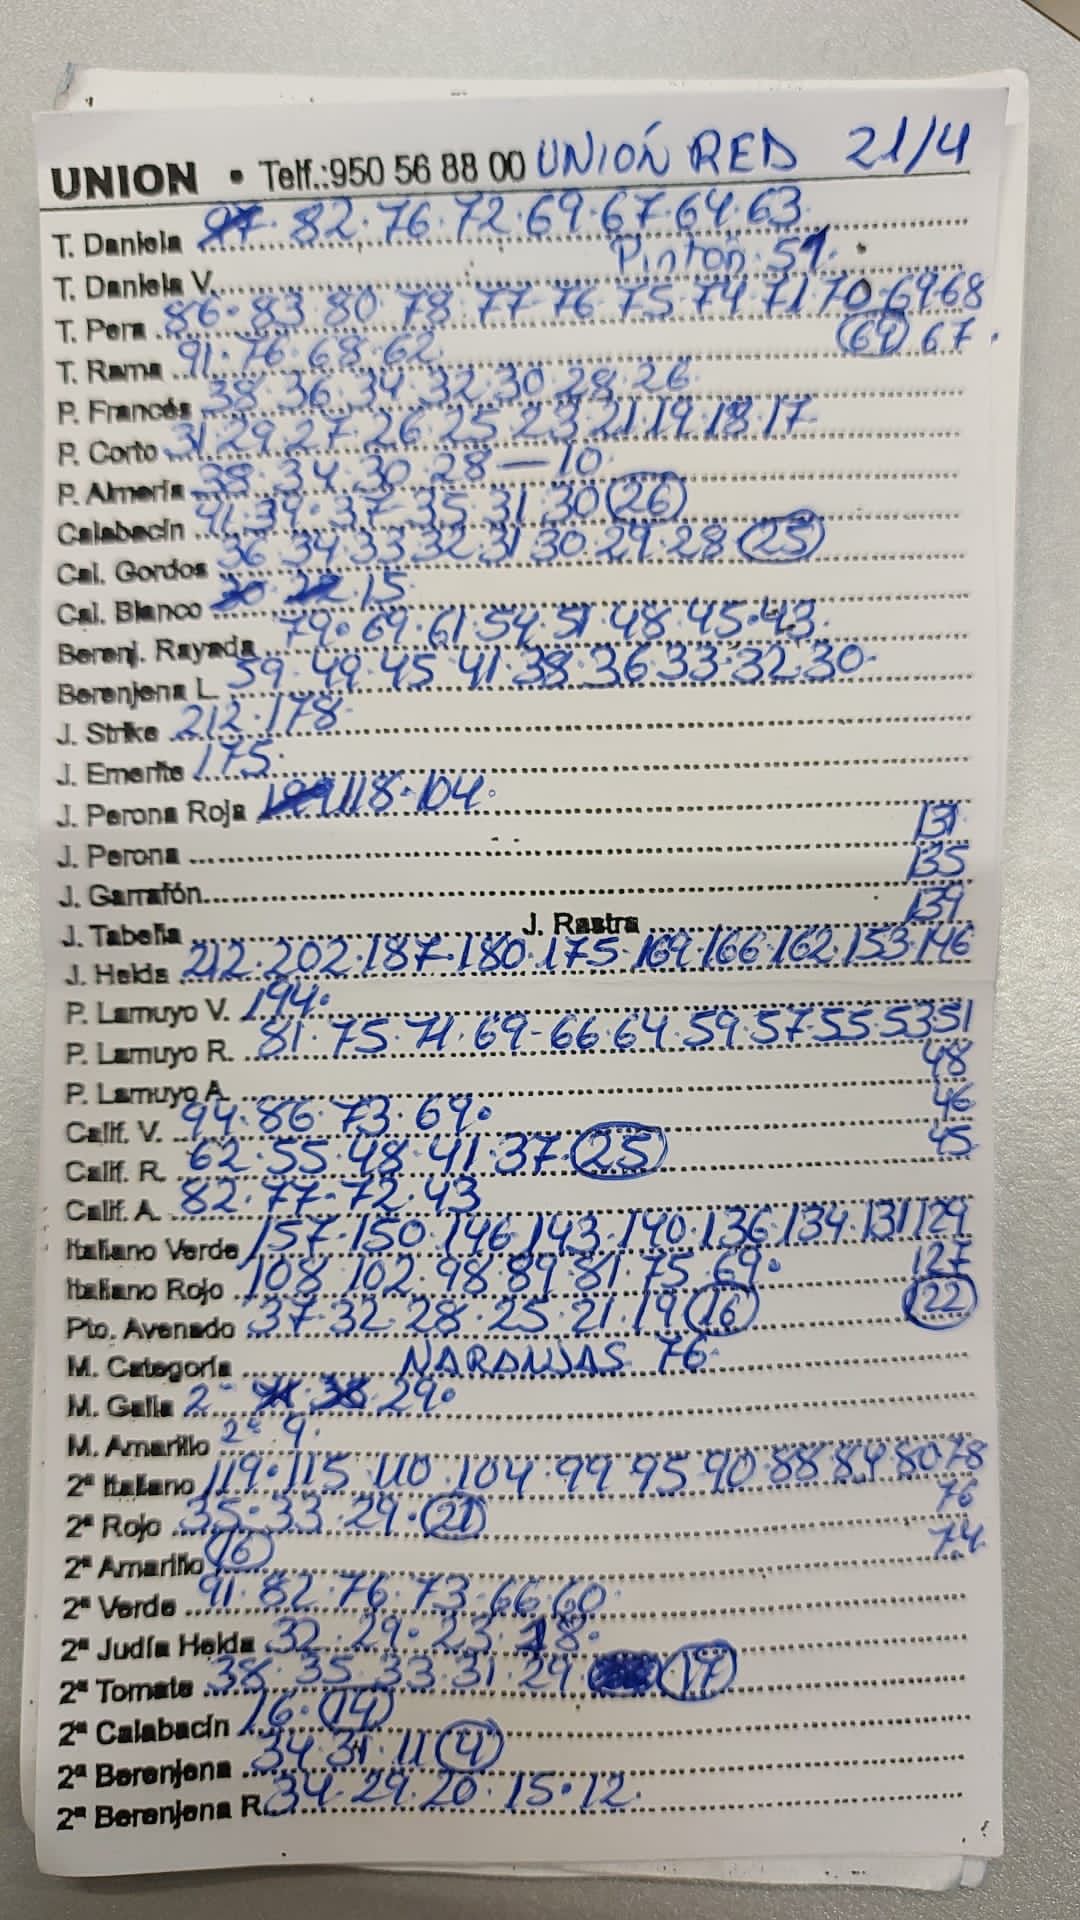 UNION • Telf.:950 56 88 00 UNIÓN RED 21/4
T. Daniela 97. 82. 76. 72. 69. 67. 64. 63
T. Daniela V. Pintón. 51.
T. Pera 86. 83. 80. 78. 77. 76. 75. 74. 71 70. 69 68
T. Rama 91. 76. 68. 62. (64) 67.
P. Francés 38. 36. 34. 32. 30. 28. 26
P. Corto 31. 29. 27. 26. 25. 23. 21. 19. 18. 17
P. Almería 38. 34. 30. 28 — 10.
Calabacín 41. 39. 37. 35. 31. 30 (26)
Cal. Gordos 36. 34. 33. 32. 31. 30. 29. 28 (25)
Cal. Blanco 15.
Berenj. Rayada 79. 69. 61. 54. 51. 48. 45. 43.
Berenjena L. 59. 49. 45. 41. 38. 36. 33. 32. 30.
J. Strike 212. 178.
J. Emerite 175.
J. Perona Roja 118. 104.
J. Perona 131
J. Garrafón 135
J. Tabella J. Rastra 139
J. Helda 212. 202. 187. 180. 175. 169. 166. 162. 153. 146
P. Lamuyo V. 194.
P. Lamuyo R. 81. 75. 71. 69 - 66. 64. 59. 57. 55. 53 51
P. Lamuyo A. 48
Calif. V. 94. 86. 73. 69. 46
Calif. R. 62. 55. 48. 41. 37. (25) 45
Calif. A. 82. 77. 72. 43
Italiano Verde 157. 150. 146. 143. 140. 136. 134. 131 129
Italiano Rojo 108. 102. 98. 89. 81. 75. 69. 127
Pto. Avenado 37. 32. 28. 25. 21. 19 (16) (22)
M. Categoría NARANJAS 76.
M. Galia 2ª 29.
M. Amarillo 2ª 9.
2ª Italiano 119. 115. 110. 104. 99. 95. 90. 88. 84. 80 78
2ª Rojo 35. 33. 29. (21) 76
2ª Amarillo (16) 74
2ª Verde 91. 82. 76. 73. 66. 60.
2ª Judía Helda 32. 29. 23. 18.
2ª Tomate 38. 35. 33. 31. 29 (17)
2ª Calabacín 16. (14)
2ª Berenjena 34. 31. 11 (4)
2ª Berenjena R. 34. 29. 20. 15. 12.